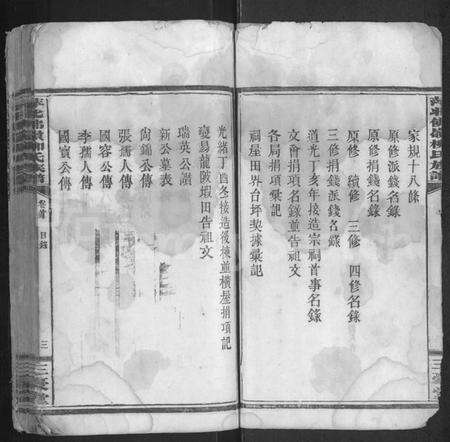 家規十八條
原修派錢名錄
原修捐錢名錄
原修 續修 三修 四修名錄
三修捐錢派錢名錄
道光丁亥年接造宗祠首事名錄
文會捐項名錄並告祖文
各房捐項彙記
祠屋田界台坪契據彙記
光緒丁酉冬接造後棟並橫屋捐項記
龍陂塅田告祖文
瑞英公讚
新公墓表
尚錦公傳
張孺人傳
國容公傳
李孺人傳
國賓公傳
卷首 目錄
三